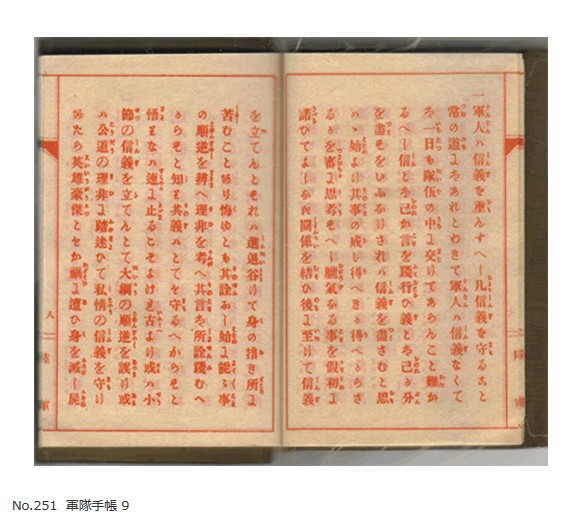 一軍人ハ信義を重んすへし凡信義を守ること
常の道にハあれとわきて軍人ハ信義なくて
ハ一日も隊伍の中に交りてあらんこと難か
るへし信とハ己か言を踐行ひ義とハ己か分
を盡すをいふなりされハ信義を盡さむと思
ハゝ始より其事の成し得へきか得へからさ
るかを審に思考すへし朧氣なる事を假初に
諾ひてよしなき關係を結ひ後に至りて信義
を立てんとすれハ進退谷りて身の措き所に
苦むことあり悔ゆとも其詮なし始に能々事
の順逆を辨へ理非を考へ其言ハ所詮踐むへ
からすと知り其義ハとても守るへからすと
悟りなハ速に止るこそよけれ古より或ハ小
節の信義を立てんとて大綱の順逆を誤り或
ハ公道の理非に踏迷ひて私情の信義を守り
あたら英雄豪傑ともか禍に遭ひ身を滅し屍
八
陸軍
No.251 軍隊手帳 9